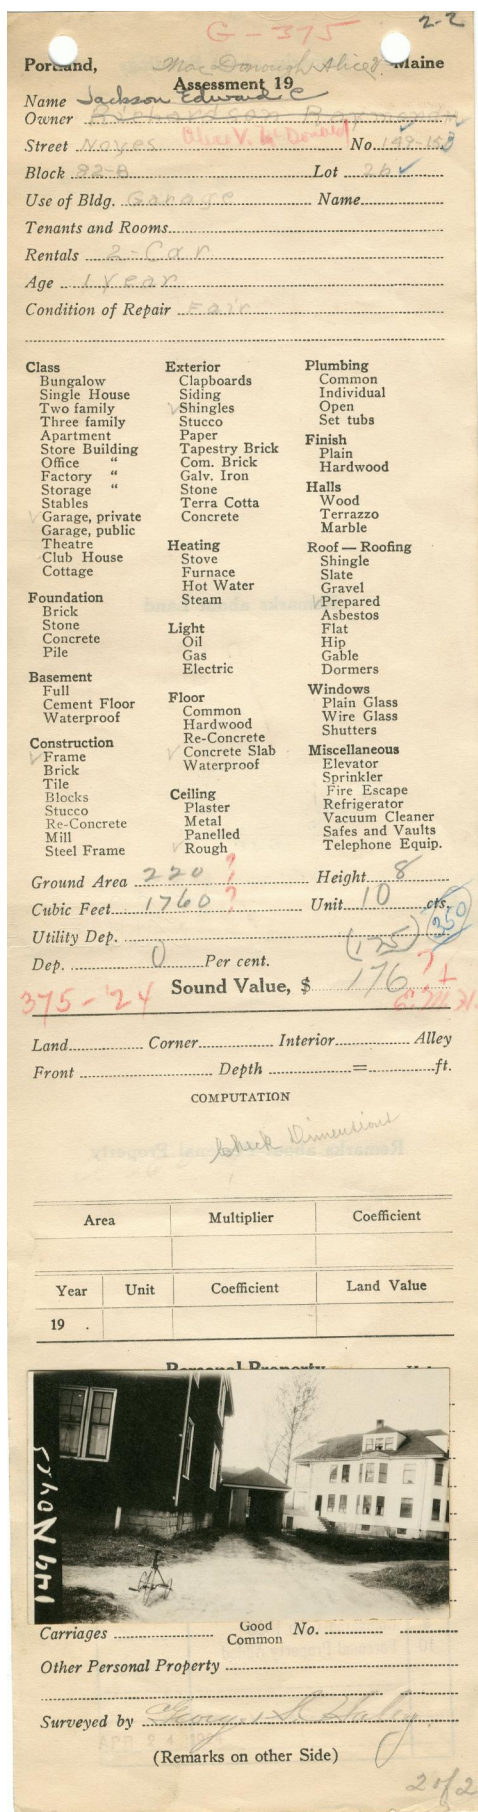 G-375
2-2
Portland, Mac Donough, Alice V Maine
Assessment 19
Name Jackson Edward C
Owner Richardson Raymond
Alice V. McDonald
Street Noyes No. 149-153
Block 82-B Lot 26 ✓
Use of Bldg. Garage Name
Tenants and Rooms
Rentals 2-Car
Age 1 Year
Condition of Repair Fair
Class
Bungalow
Single House
Two family
Three family
Apartment
Store Building
Office "
Factory "
Storage "
Stables
✓ Garage, private
Garage, public
Theatre
Club House
Cottage
Foundation
Brick
Stone
Concrete
Pile
Basement
Full
Cement Floor
Waterproof
Construction
✓ Frame
Brick
Tile
Blocks
Stucco
Re-Concrete
Mill
Steel Frame
Exterior
Clapboards
Siding
✓ Shingles
Stucco
Paper
Tapestry Brick
Com. Brick
Galv. Iron
Stone
Terra Cotta
Concrete
Heating
Stove
Furnace
Hot Water
Steam
Light
Oil
Gas
Electric
Floor
Common
Hardwood
Re-Concrete
✓ Concrete Slab
Waterproof
Ceiling
Plaster
Metal
Panelled
✓ Rough
Plumbing
Common
Individual
Open
Set tubs
Finish
Plain
Hardwood
Halls
Wood
Terrazzo
Marble
Roof — Roofing
Shingle
Slate
Gravel
Prepared
Asbestos
Flat
Hip
Gable
Dormers
Windows
Plain Glass
Wire Glass
Shutters
Miscellaneous
Elevator
Sprinkler
Fire Escape
Refrigerator
Vacuum Cleaner
Safes and Vaults
Telephone Equip.
Ground Area 220 ? Height 8
Cubic Feet 1760 ? Unit 10 cts.
350
Utility Dep.
(175)
Dep. 0 Per cent.
Sound Value, $ 176 ?
375-'24 E.M.H.
Land Corner Interior Alley
Front Depth = ft.
COMPUTATION
Check Dimensions
Area Multiplier Coefficient
Year Unit Coefficient Land Value
19 .
Personal Property
149 Noyes
Carriages Good Common No.
Other Personal Property
Surveyed by
(Remarks on other Side)
2 of 2